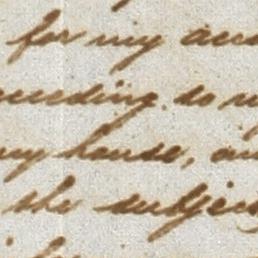 for my acc
ceeding, so
my house, an
the subjec